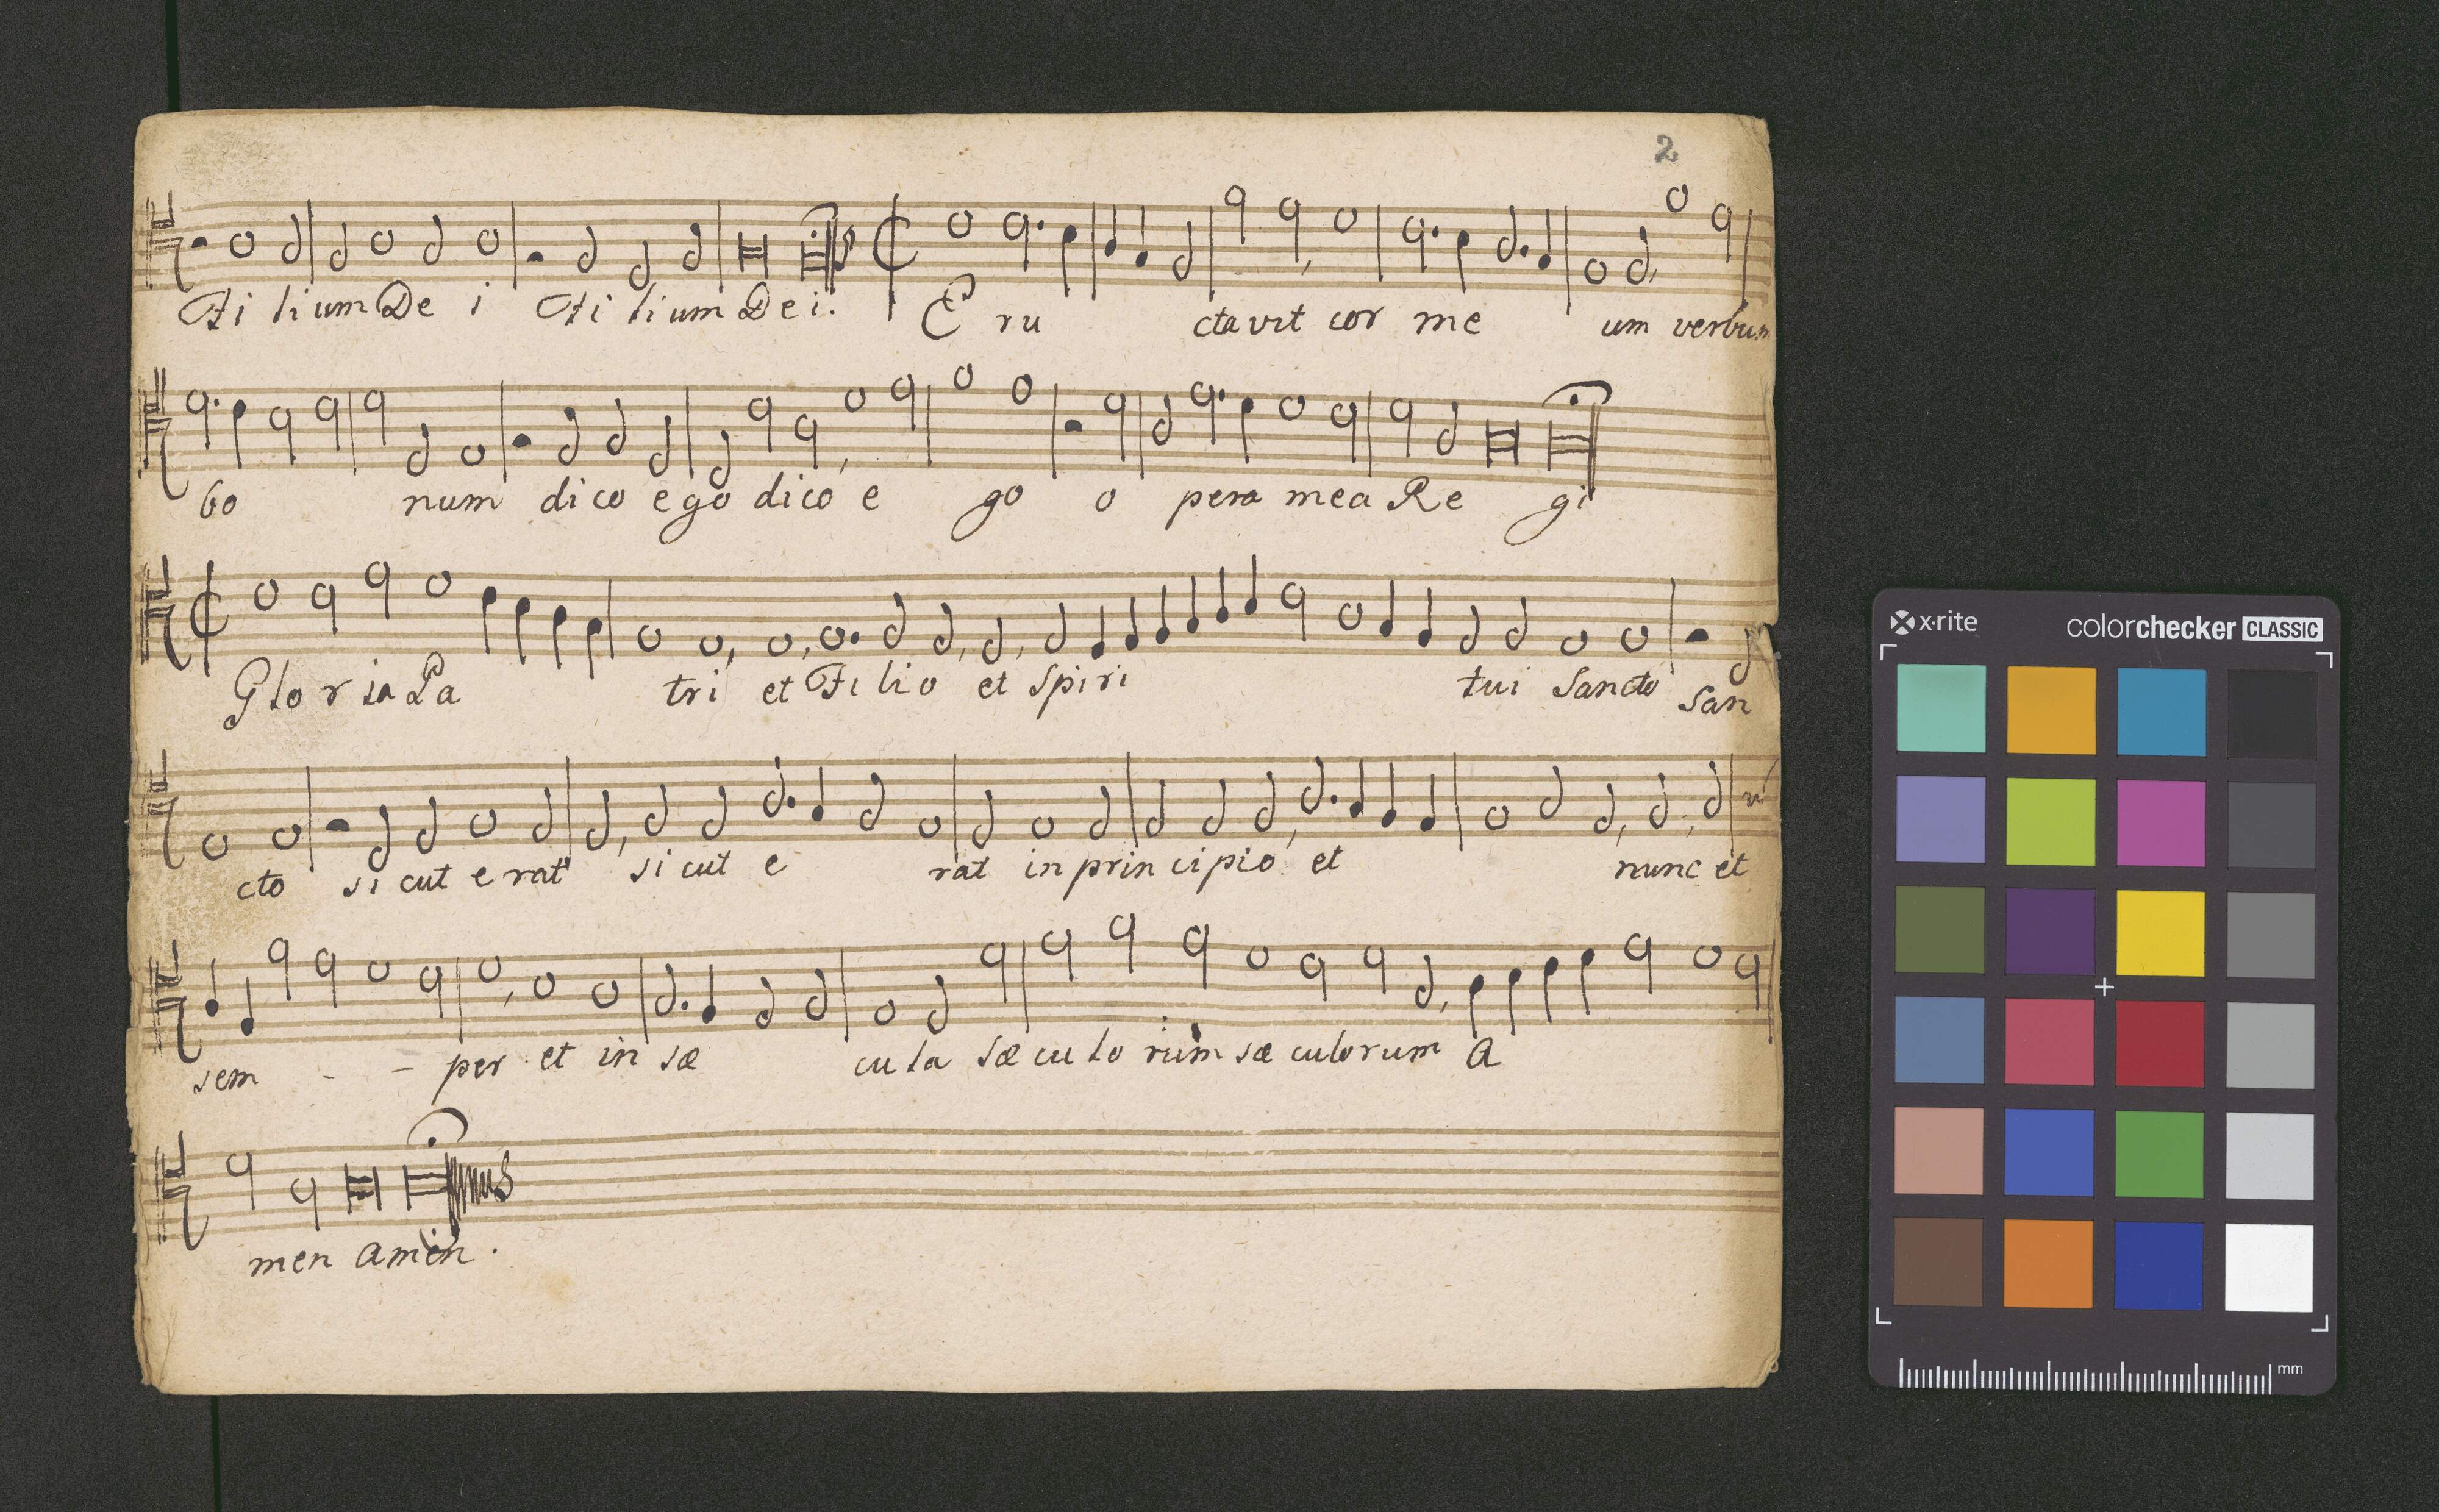 2
Fi li um De i Fi li um De i. E ru cta vit cor me um verbum
bo num di co e go di co e go o pera mea Re gi
Glo r ia Pa tri et Fi li o et spi ri tui Sancto San
cto si cut e rat si cut e rat in prin ci pio et nunc et
sem - - per et in sæ cu la sæ cu lo rum sæ culorum a
men amen.
x·rite colorchecker CLASSIC
mm